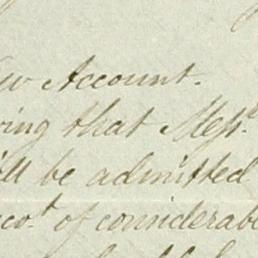 ew Account.
ing that Mess.rs
ill be admitted
cot. of considerab